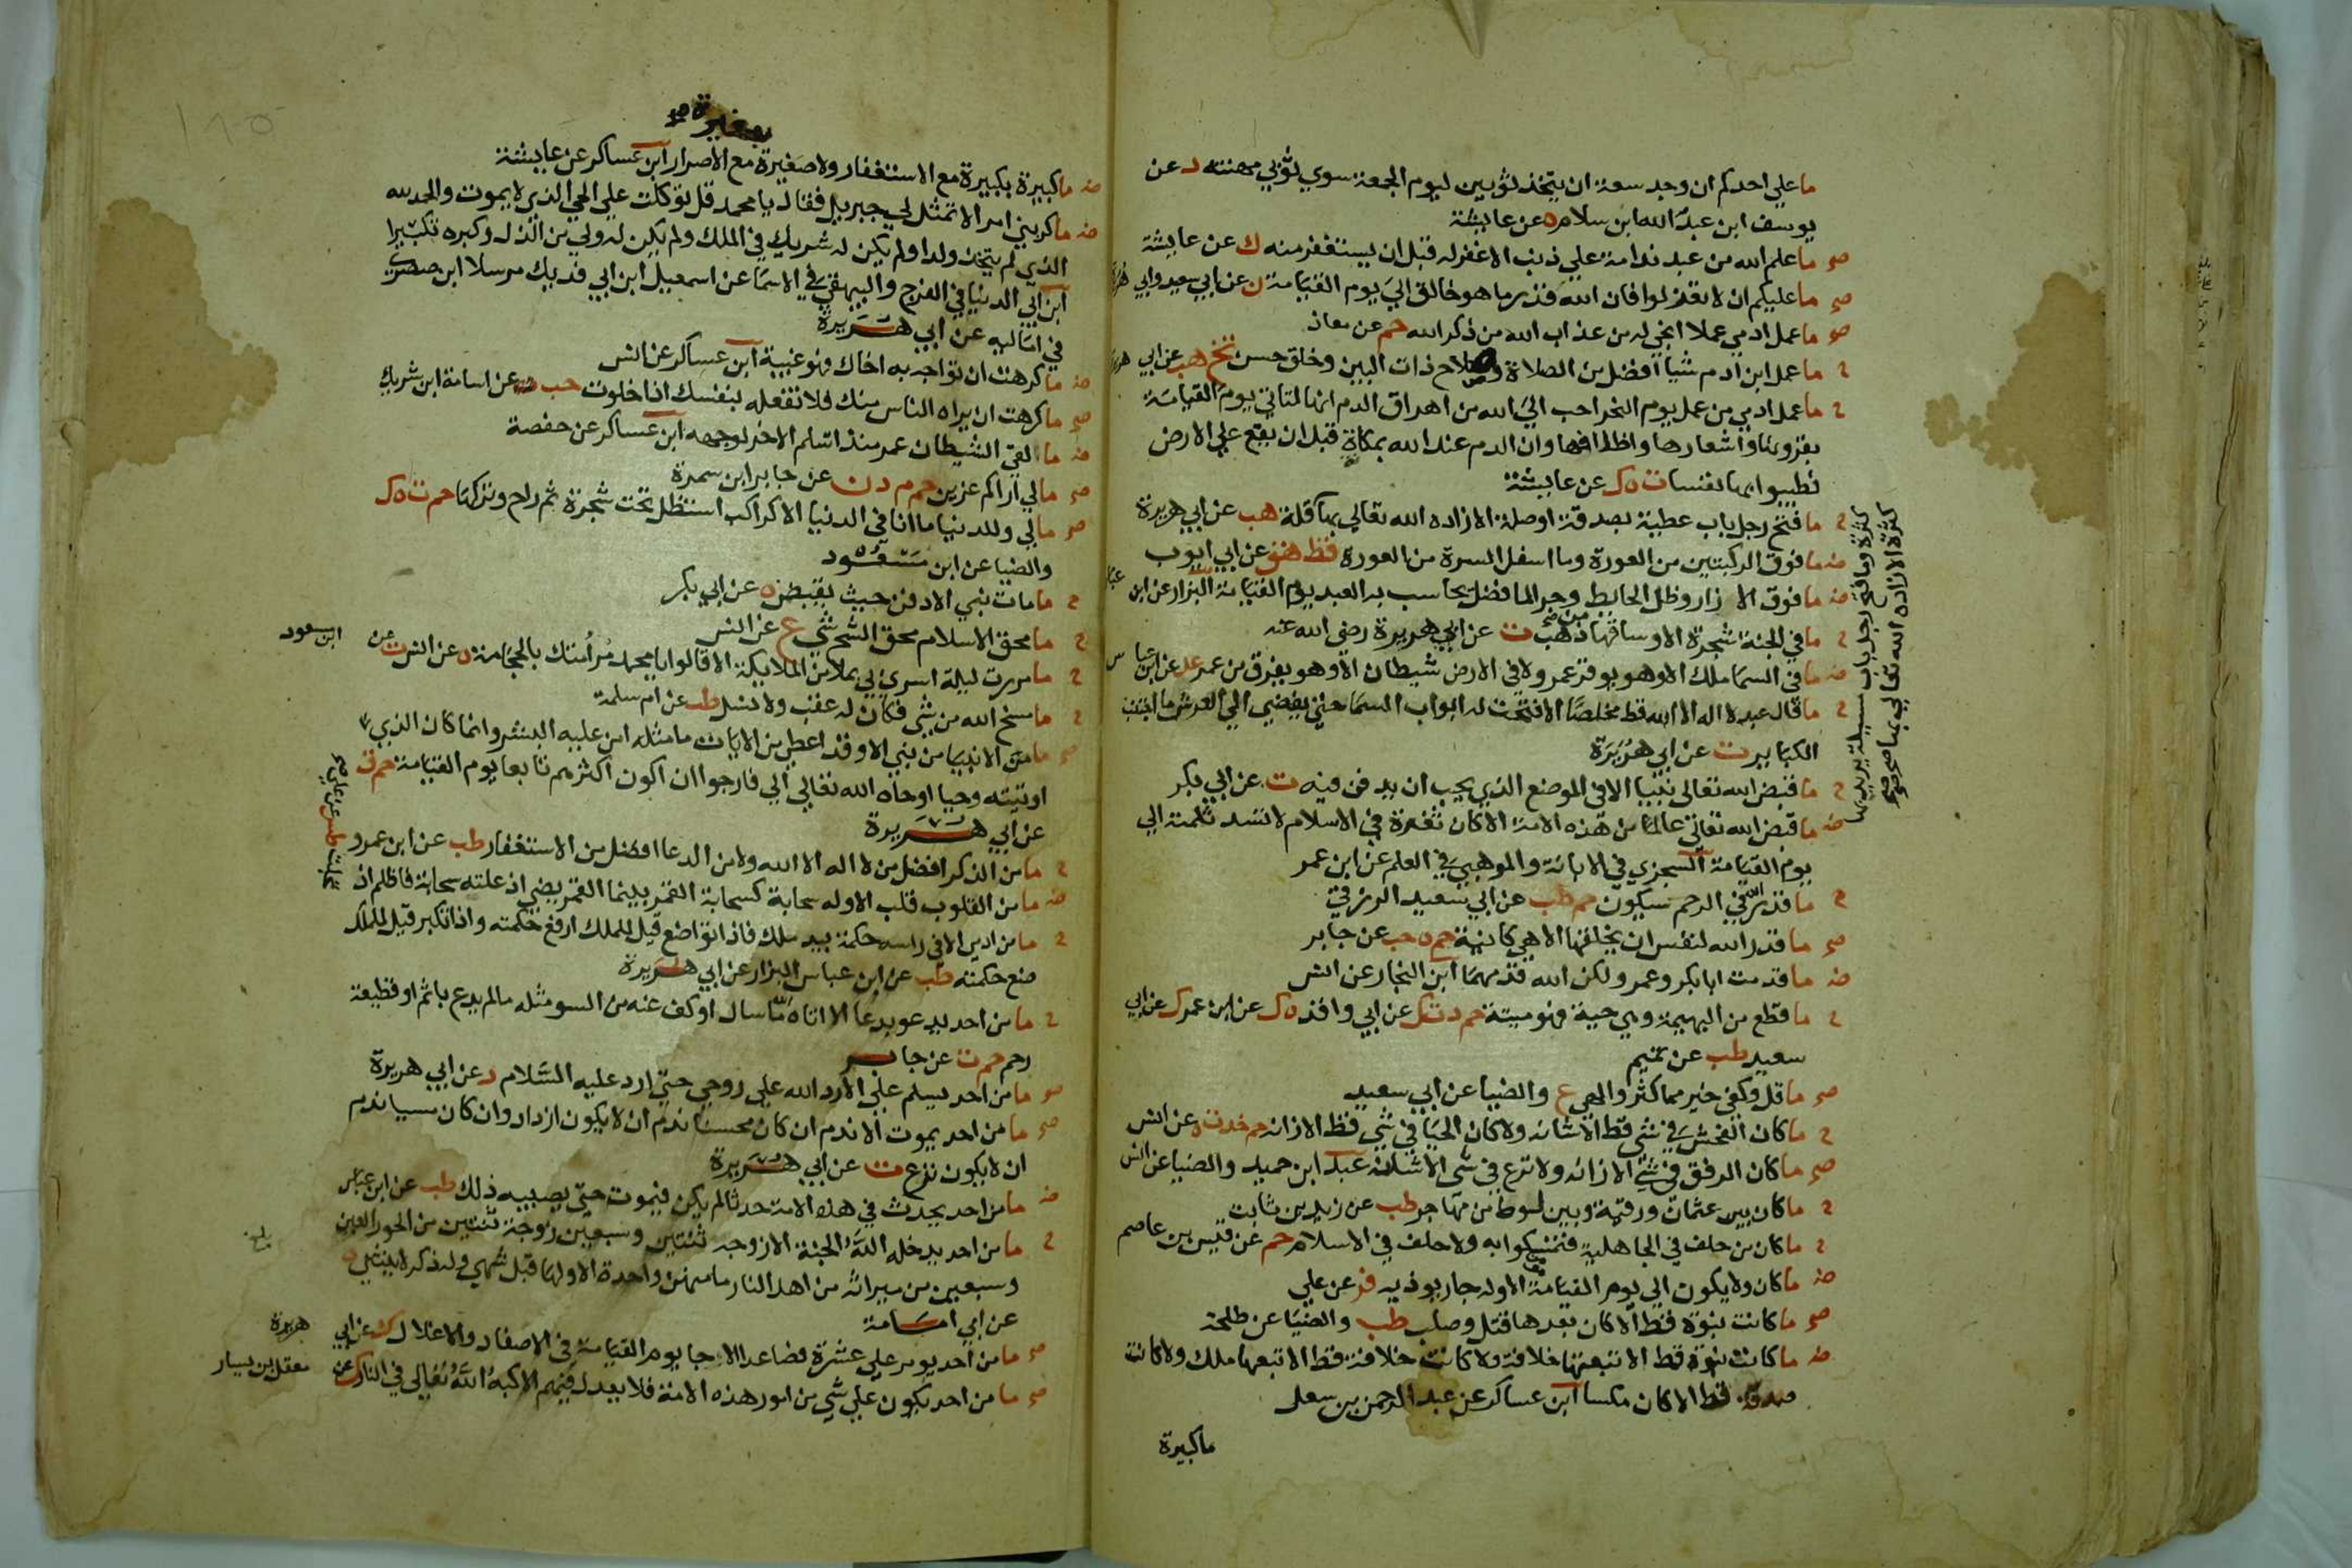 ما علي احدكم ان وجد سعة ان يتخذ ثوبين ليوم الجمعة سوي ثوبي مهنته د عن
يوسف ابن عبد الله ابن سلام ه عن عايشة
صح ما علم الله من عبد ندامة علي ذنب الا غفر له قبل ان يستغفر منه ك عن عايشة
صح ما عليكم ان لا تعزلوا فان الله قدر ما هو خالق الي يوم القيامة ن عن ابي سعيد وابي هريرة
صح ما عمل ادمي عملا انجي له من عذاب الله من ذكر الله حم عن معاذ
ح ما عمل ابن ادم شيا افضل من الصلاة وصلاح ذات البين وخلق حسن تخ هب عن ابي هريرة
ح ما عمل ادمي من عمل يوم النحر احب الي الله من اهراق الدم انها لتاتي يوم القيامة
بقرونها واشعارها واظلافها وان الدم عند الله بمكان قبل ان يقع علي الارض
فطيبوا بها نفسا ت ه ك عن عايشة
ح ما فتح رجل باب عطية بصدقة او صلة الا زاده الله تعالي بها قلة هب عن ابي هريرة
كثرة وما فتح رجل باب مسيلة يريد بها
كثرة الا زاده الله تعالي بها صح
ضه ما فوق الركبتين من العورة وما اسفل السرة من العورة قط هق عن ابي ايوب
ضه ما فوق الازار وظل الحايط وجر الما فضل يحاسب به العبد يوم القيامة البزار عن ابن عباس
ح ما في الجنة شجرة الا وساقها من ذهب ت عن ابي هريرة رضي الله عنه
ضه ما في السما ملك الا وهو يوقر عمر ولا في الارض شيطان الا وهو يفرق من عمر عد عن ابن عباس
ح ما قال عبد لا اله الا الله قط مخلصا الا فتحت له ابواب السما حتي يفضي الي العرش ما اجتنب
الكباير ت عن ابي هريرة
ح ما قبض الله تعالي نبيا الا في الموضع الذي يحب ان يدفن فيه ت عن ابي بكر
ضه ما قبض الله تعالي عالما من هذه الامة الا كان ثغرة في الاسلام لا تسد ثلمته الي
يوم القيامة السجزي في الابانة والموهبي في العلم عن ابن عمر
ح ما قدر الله في الرحم سيكون حم طب عن ابي سعيد الزرقي
صح ما قدر الله لنفس ان يخلقها الا هي كاينة حم ه حب عن جابر
ضه ما قدمت ابا بكر وعمر ولكن الله قدمهما ابن النجار عن انس
ح ما قطع من البهيمة وهي حية فهو ميتة حم د ت ك عن ابي واقد ه ك عن ابن عمر ك عن ابي
سعيد طب عن تميم
صح ما قل وكفي خير مما كثر والهي ع والضيا عن ابي سعيد
ح ما كان الفحش في شي قط الا شانه ولا كان الحيا في شي قط الا زانه حم خد ت ه عن انس
صح ما كان الرفق في شي الا زانه ولا نزع في شي الا شانه عبد ابن حميد والضيا عن انس
ح ما كان بين عثمان ورقية وبين لوط من مهاجر طب عن زيد بن ثابت
ح ما كان من حلف في الجاهلية فتمسكوا به ولا حلف في الاسلام حم عن قيس بن عاصم
ضه ما كان ولا يكون الي يوم القيامة الا وله جار يوذيه فر عن علي
صح ما كانت نبوة قط الا كان بعدها قتل وصلب طب والضيا عن طلحة
ضه ما كانت نبوة قط الا تبعتها خلافة ولا كانت خلافة قط الا تبعها ملك ولا كانت
صدقة قط الا كان مكسا ابن عساكر عن عبد الرحمن بن سهل
ما كبيرة
ضه ما كبيرة بكبيرة مع الاستغفار ولا صغيرة مع الاصرار ابن عساكر عن عايشة
بصغيرة صح
ضه ما كربني امر الا تمثل لي جبريل فقال يا محمد قل توكلت علي الحي الذي لا يموت والحمد لله
الذي لم يتخذ ولدا ولم يكن له شريك في الملك ولم يكن له ولي من الذل وكبره تكبيرا
ابن ابي الدنيا في الفرج والبيهقي في الاسما عن اسمعيل ابن ابي فديك مرسلا ابن صصري
في اماليه عن ابي هريرة
ضه ما كرهت ان تواجه به اخاك فهو غيبة ابن عساكر عن انس
صح ما كرهت ان يراه الناس منك فلا تفعله بنفسك اذا خلوت حب عن اسامة ابن شريك
ضه ما لقي الشيطان عمر منذ اسلم الا خر لوجهه ابن عساكر عن حفصة
صح ما لي اراكم عزين حم م د ن عن جابر ابن سمرة
صح ما لي وللدنيا ما انا في الدنيا الا كراكب استظل تحت شجرة ثم راح وتركها حم ت ه ك
والضيا عن ابن مسعود
ح ما مات نبي الا دفن حيث يقبض ه عن ابي بكر
ح ما محق الاسلام محق الشح شي ع عن انس
ح ما مررت ليلة اسري بي بملا من الملايكة الا قالوا يا محمد مر امتك بالحجامة ه عن انس ت عن ابن مسعود
ح ما مسخ الله من شي فكان له عقب ولا نسل طب عن ام سلمة
صح ما من الانبيا من نبي الا وقد اعطي من الايات ما مثله امن عليه البشر وانما كان الذي
اوتيته وحيا اوحاه الله تعالي الي فارجوا ان اكون اكثرهم تابعا يوم القيامة حم ق
عن ابي هريرة
ح ما من الذكر افضل من لا اله الا الله ولا من الدعا افضل من الاستغفار طب عن ابن عمرو
ضه ما من القلوب قلب الا وله سحابة كسحابة القمر بينما القمر يضي اذ علته سحابة فاظلم اذ
تجلت طس عن علي صح
ح ما من ادمي الا في راسه حكمة بيد ملك فاذا تواضع قيل للملك ارفع حكمته واذا تكبر قيل للملك
ضع حكمته طب عن ابن عباس البزار عن ابي هريرة
ح ما من احد يدعو بدعا الا اتاه الله ما سال او كف عنه من السو مثله ما لم يدع باثم او قطيعة
رحم حم ت عن جابر
صح ما من احد يسلم علي الا رد الله علي روحي حتي ارد عليه السلام د عن ابي هريرة
صح ما من احد يموت الا ندم ان كان محسنا ندم ان لا يكون ازداد وان كان مسيا ندم
ان لا يكون نزع ت عن ابي هريرة
ضه ما من احد يحدث في هذه الامة حدثا لم يكن فيموت حتي يصيبه ذلك طب عن ابن عباس
ح ما من احد يدخله الله الجنة الا زوجه ثنتين وسبعين زوجة ثنتين من الحور العين
وسبعين من ميراثه من اهل النار ما منهن واحدة الا ولها قبل شهي وله ذكر لا ينثني ه
عن ابي امامة
صح ما من احد يومر علي عشرة فصاعدا الا جا يوم القيامة في الاصفاد والاغلال ك عن ابي هريرة
صح ما من احد يكون علي شي من امور هذه الامة فلا يعدل فيهم الا كبه الله تعالي في النار ك عن معقل بن يسار